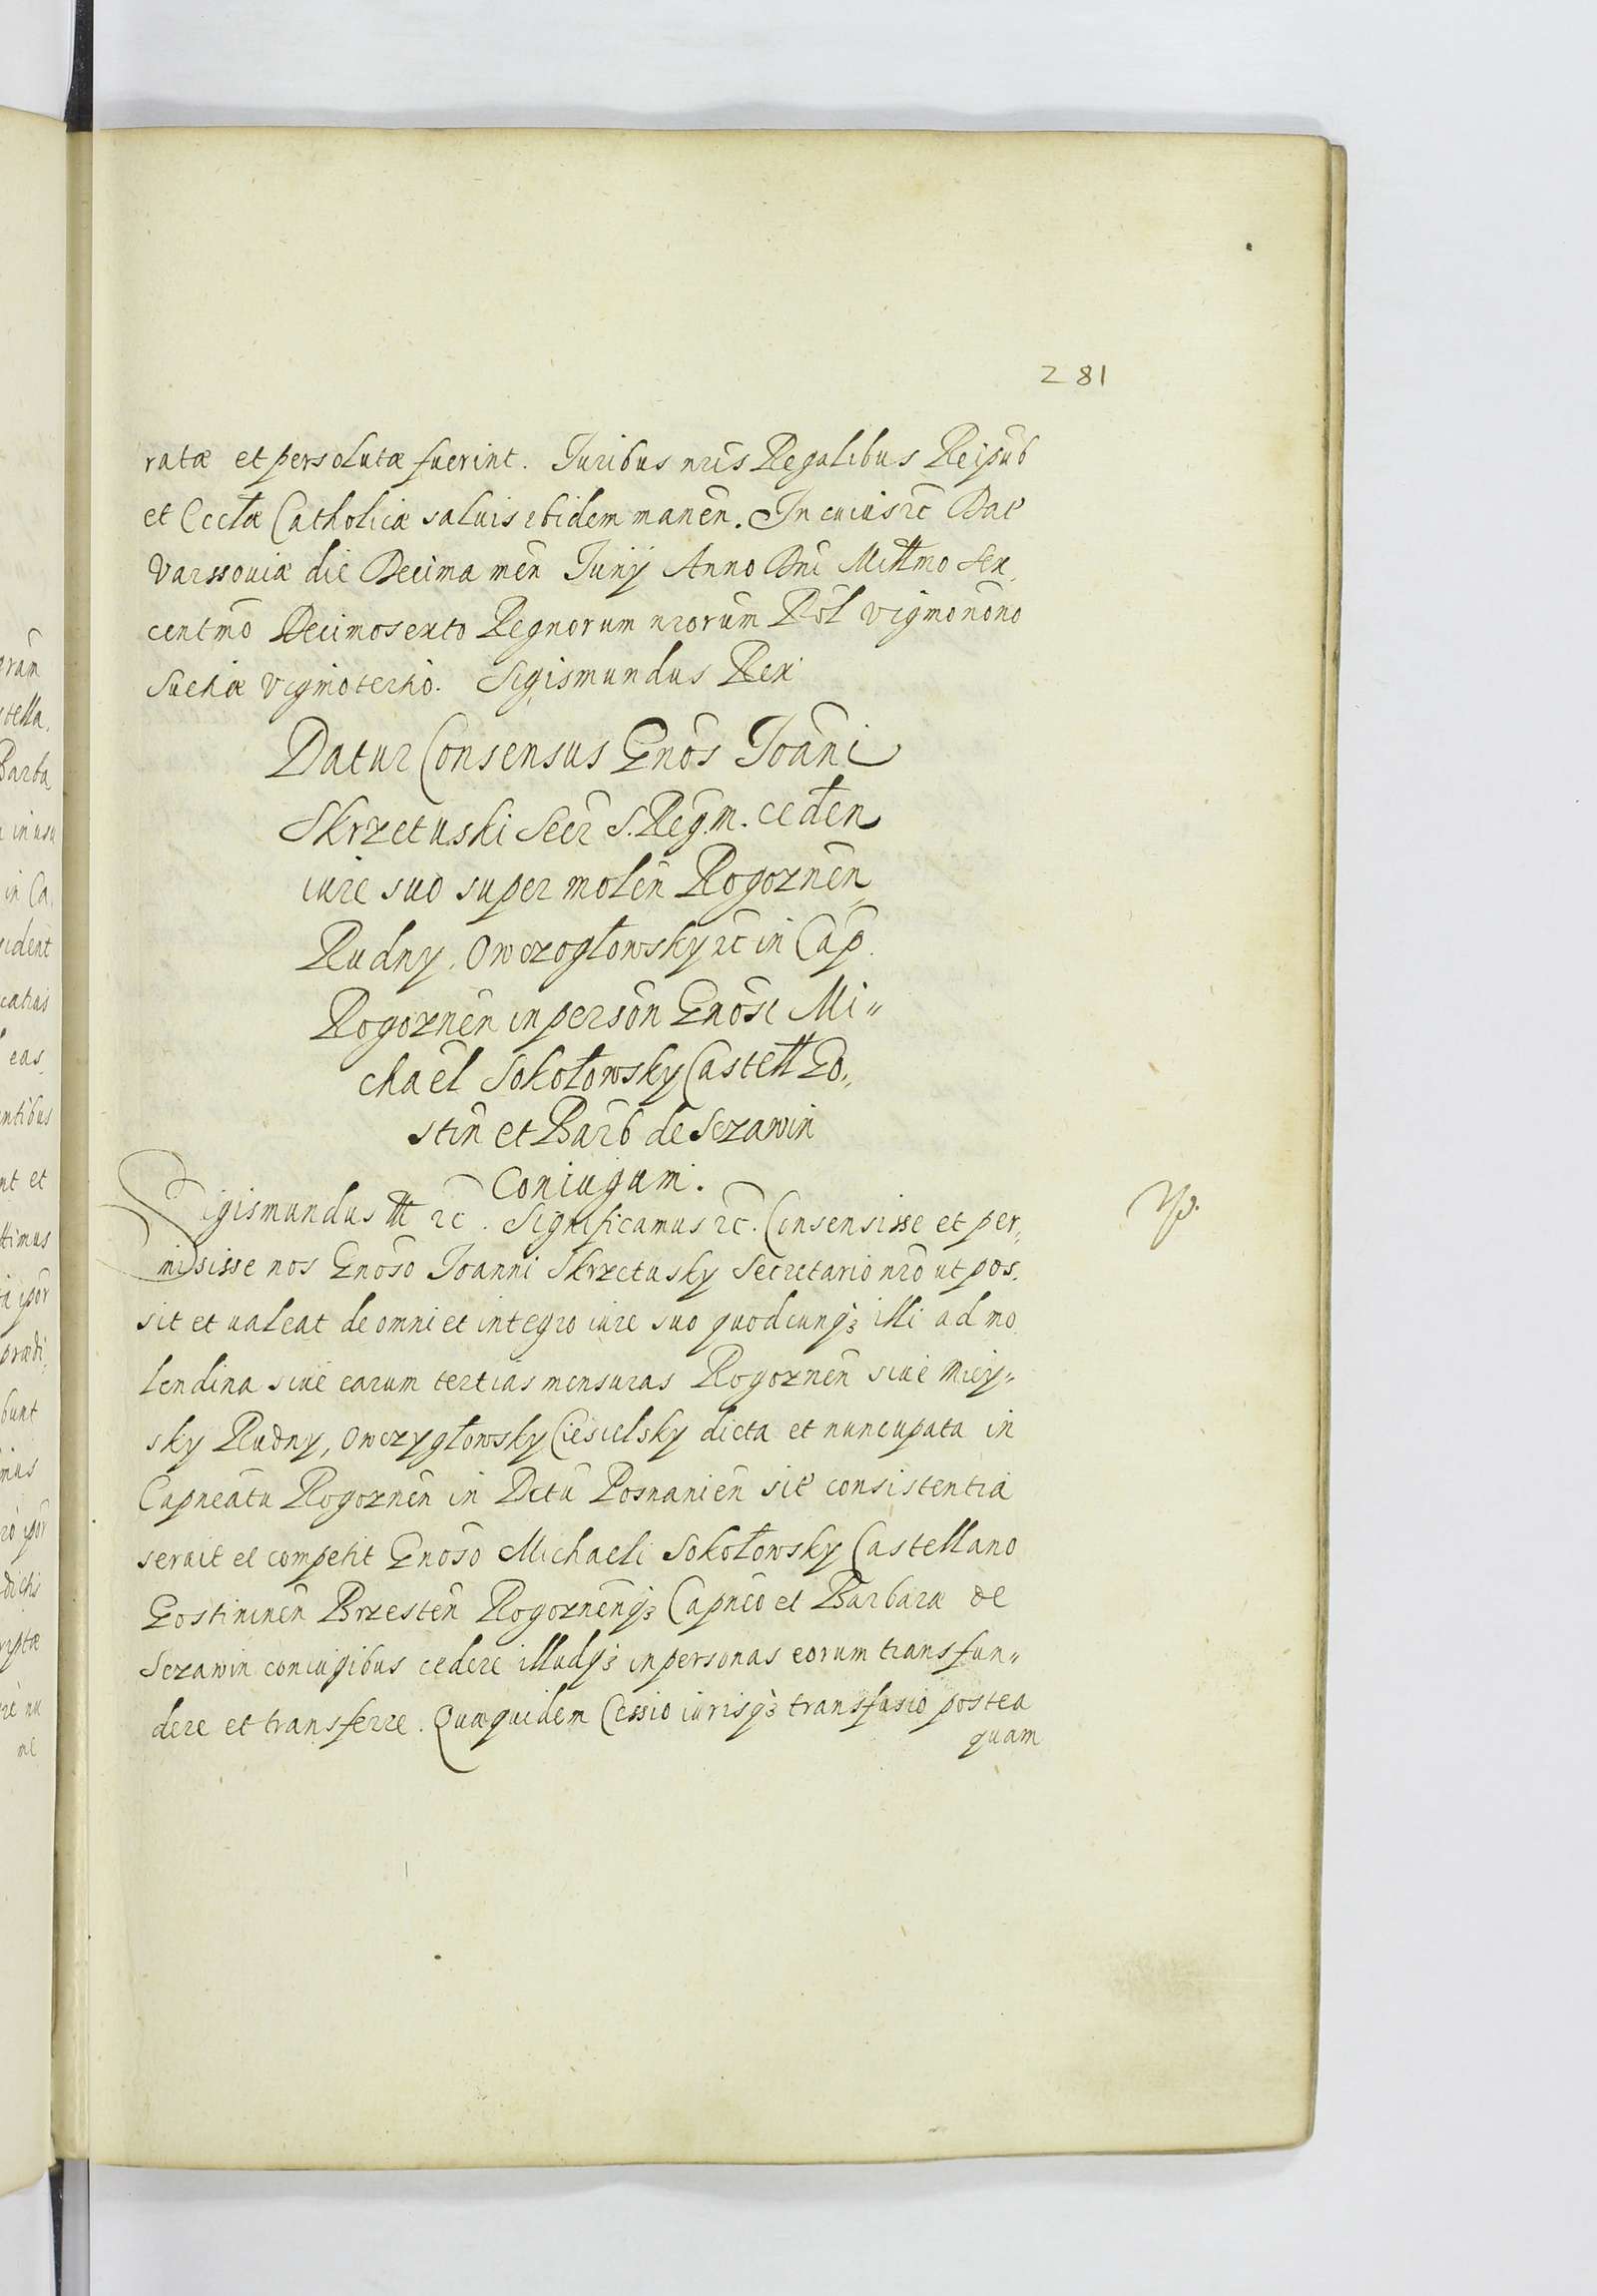 281
ratæ et persolutæ fuerint. Juribus nr̃is Regalibus Reipub̃
et Eccl̃æ Catholicæ saluis ibidem manen̄. In cuius rc̃ Dat̃
Varssouiæ die Decima men̄ Junij Anno Dn̄i Mill̃mo sex,
centm̃o Decimosexto Regnorum nr̃orum Pol̃ vigmonōno
Sueciæ vigmotertio. Sigismundus Rex
Datur Consensus Gnos̃ Joañi
Skrzetuski Secr̃ S. Reg. m. ceden̄
iure suo super molen̄ Rogoznen̄
Rudny, Owczogłowsky rc̃ in Cap̃.
Rogoznen̄ in person̄ Gnosi Mi„
chael̃ Sokołowsky Castell̃ Go„
stin̄ et Barb̃ de Sczawin
Coniugum.
Sigismundus III rc̃. Significamus rc̃. Consensisse et per„
misisse nos Gnoso Joanni Skrzetusky Secretario nr̃o ut pos„
sit et ualeat de omni et integro iure suo quodcunqꝫ illi ad mo
lendina siue earum tertias mensuras Rogoznen̄ siue Miey„
sky Rudny, Owczygłowsky Ciesielsky dicta et nuncupata in
Capneatu Rogoznen̄ in Dctũ Posnanien̄ sit̃ consistentia
seruit et competit Gnoso Michaeli Sokołowsky Castellano
Gostininen̄ Brzesten̄ Rogoznen̄qꝫ Capneo et Barbaræ de
Sczawin coniugibus cedere illudqꝫ in personas eorum transfun„
dere et transferre. Quæquidem Cessio iurisqꝫ transfusio postea
quam